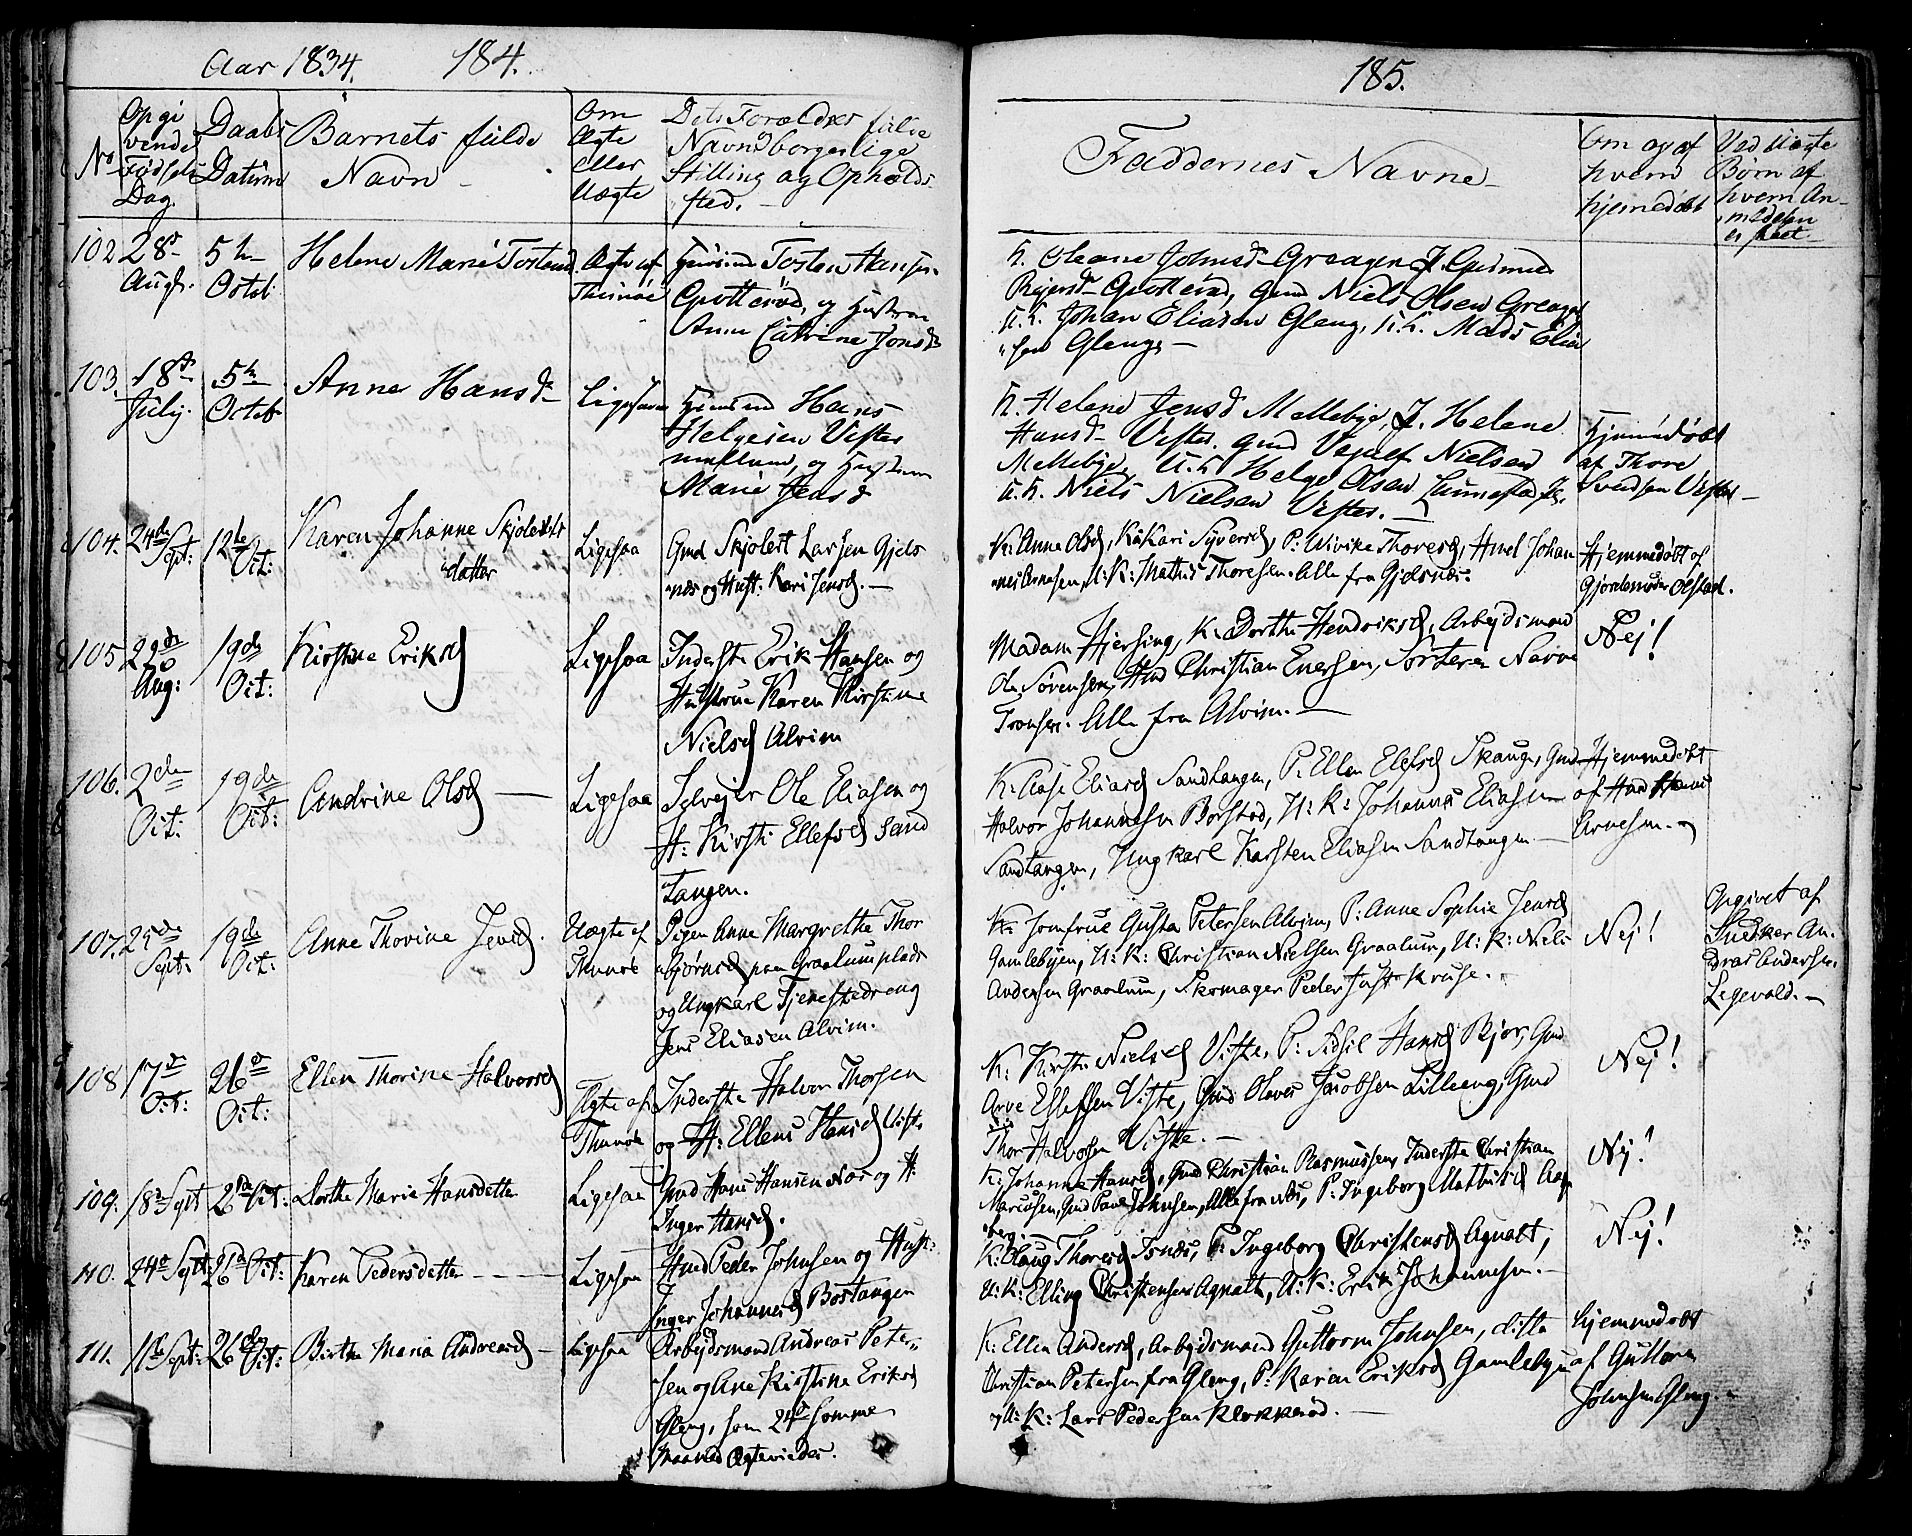 Aar 1834. 184.
No
Opgi
vende
Fødsels
Dag.
Daabs
Datum
Barnets fulde
Navn
Om
Ægte
eller
Uægte
Dets Forældres fulde
Navn, borgerlige
Stilling og Opholds
sted.
102 28de
Augs.
5te
Octob
Helene Marie Tostensd
Ægte af
Thinrøe
Huusmd Tosten Hansen
Opotterød, og Hustrue
Anne Catrine Jonsd
103. 18de
July.
5te
Octob
Anne Hansd
Ligesaa
Huusmd Hans
Helgesen Vister
mellum, og Hustrue
Marie Jensd
104. 24de
Sept:
12te
Oct:
Karen Johanne Skjolerts
datter
Ligesaa
Gmd Skjolert Larsen Gjels
næs og Hust: Kari Jensd. —
105 29de
Aug:
19de
Oct:
Kirstine Eriksd
Ligesaa
Inderste Erik Hansen og
Hustrue Karen Kirstine
Nielsd Alvim
106. 2de
Oct:
19de
Oct:
Andrine Olsd —
Ligesaa
Selvejer Ole Eliasen og
H: Kirsti Ellefsd Sand
Tangen.
107. 25de
Sept:
19de
Oct:
Anne Thorine Jensd.
Uægte af
Thunøe
Pigen Anne Margrethe Thor
bjørnsd paa Graalumplads
og Ungkarl Tjenestedreng
Jens Eliasen Alvim.
108 17de
Oct:
26de
Oct:
Ellen Thorine Halvorsd
Ægte af
Thunøe
Inderste Halvor Thorsen
og H: Ellens Hansd Vist.
109. 18de Sept 26de Oct: Dorthe Maria Hansdatter
Ligesaa
Gmd Hans Hansen Næs og H:
Inger Hansd.
110. 24de Sept 26de Oct: Karen Pedersdatter — — —
Ligesaa
Hmd Peder Johnsen og Hust:
Inger Johannesd Bostangen
111. 11te Sept: 26de Oct: Birthe Maria Andreasd —
Ligesaa
Arbejdsmand Andreas Peter
sen og Ane Kirstine Eriksd
Gleng, som 24de Somme
maaned Ægtevieder.
185.
Faddernes Navne
Om og af
hvem
hjemedøbt
Ved Uægte
Børn af
hvem An-
meldelsen
er skeet
K. Oleane Johnsd Greager J. Gudme
Rejersd Opotterød, Gmd Niels Olsen Greager
U.K. Johan Eliasen Gleng, U.K. Mads Elia
sen Gleng —
K. Helene Jensd Mellebye, J. Helene
Hansd Vister, Gmd Vejulf Nielsen
Mellebye, U.K Helge Olsen Lunnestad
U.K. Niels Nielsen Vister. —
Hjemedøbt
af Thore
Svendsen Vister
K: Anne Olsd, K: Kari Syversd, P: Wivike Thoresd, Hmd Johan
nes Arnesen, U:K: Mathis Thoresen. Alle fra Gjelsnæs.
Hjemmedøbt af
Gjordemoder Olstad.
Madam Hjersing, K: Dorthe Hendriksd, Arbejdsmand
Ole Sørensen, Hmd Christian Enersen, Sorterer Narve
Tronsen. Alle fra Alvim. —
Nej!
K: Aase Eliasd Sandtangen, P: Ellen Elefsd Skaug, Gmd
Halvor Johannesen Borstad, U: K: Johannes Eliasen
Sandtangen, Ungkarl Karsten Eliasen Sandtangen —
Hjemmedøbt
af Hmd Hans
Arnesen.
K: Jomfrue Gusta Petersen Alvim, P: Anne Sophie Jensd
Gamlebyen, U: K: Christian Nielsen Graalum, U: K: Niels
Andersen Graalum, Skomager Peder Just Kruse.
Nej!
Opgivet af
Snedker An
dreas Andersen
Legevold. —
K: Kirsti Nielsd Viste, P: Sidsil Hansd Bjor, Gmd
Arve Ellefsen Viste, Gmd Olaves Jacobsen Lilleeng, Gmd
Thor Halvorsen Viste. —
Nej!
K: Johanne Hansd, Gmd Christian Rasmussen, Inderste Christian
Mariusen, Gmd Paul Johnsen, Alle fra Næs, P: Ingeborg Mathisd Aas
berg. —
Nej!
K: Olaug Thoresd Isnæs, P: Ingeborg Christensd Agnalt,
U: K: Elling Christensen Agnalt, U: K: Erik Johannesen. —
Nej!
K: Ellen Andersd, Arbejdsmand Guttorm Johnsen, ditto
Christian Petersen fra Gleng, P: Karen Eriksd Gamlebyen
U: K: Lars Pedersen Klokkerød. —
hjemmedøbt
af Guttorm
Johnsen Gleng